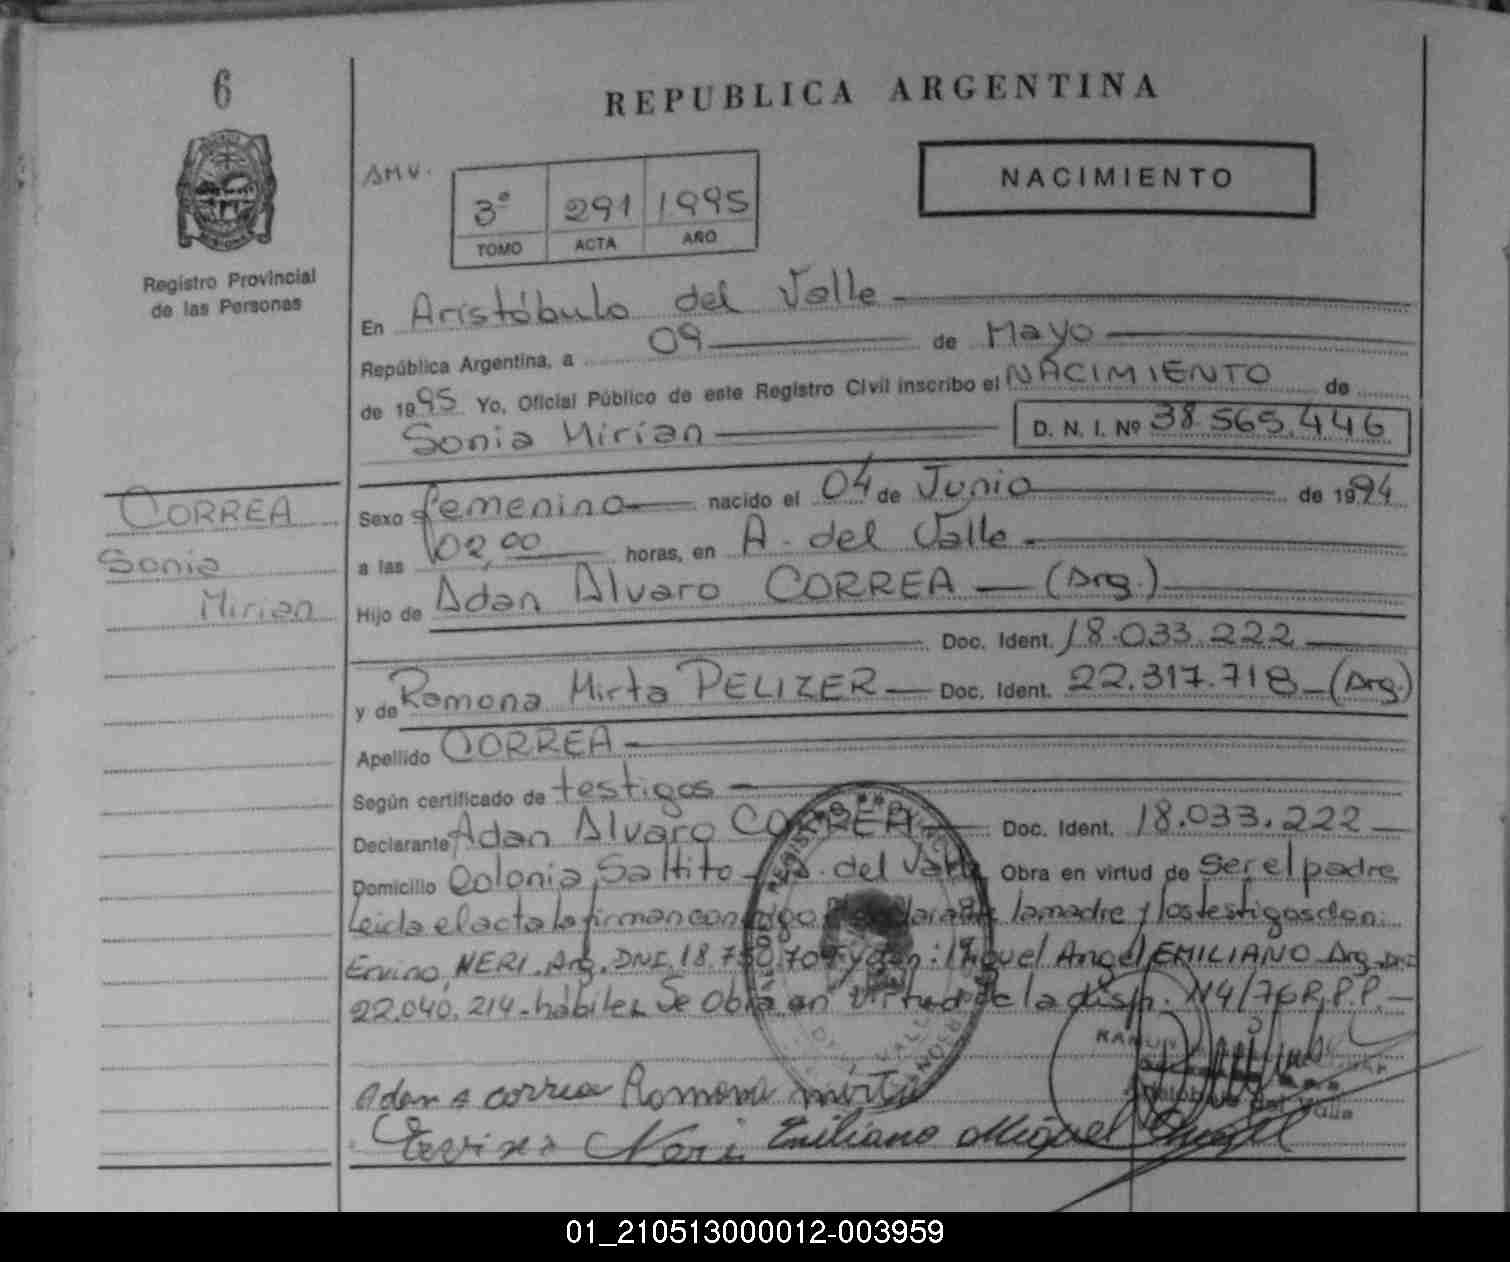 6
REPUBLICA ARGENTINA
NACIMIENTO
AMV.
3º 291 1995
TOMO ACTA AÑO
Registro Provincial
de las Personas
En Aristóbulo del Valle
República Argentina, a 09 de Mayo
de 1995 Yo, Oficial Público de este Registro Civil inscribo el NACIMIENTO de
Sonia Mirian D. N. I. Nº 38.565.446
CORREA
Sonia
Mirian
Sexo femenino nacido el 04 de Junio de 1994
a las 02,00 horas, en A. del Valle
Hijo de Adan Alvaro CORREA — (Arg.)
Doc. Ident. 18.033.222
y de Ramona Mirta PELIZER — Doc. Ident. 22.317.718 — (Arg.)
Apellido CORREA
Según certificado de testigos
Declarante Adan Alvaro CORREA Doc. Ident. 18.033.222
Domicilio Colonia Saltito - A. del Valle Obra en virtud de ser el padre
Leida el acta la firman conmigo la madre y los testigos don:
Ervino NERI. Arg. DNI. 18. y don: Miguel Angel EMILIANO Arg. DNI
22.040.214 - habiles Se Obra en virtud de la disp. 114/76 R.P.P. —
Adan A correa Ramona mirta
Neri Emiliano Miguel Angel
01_210513000012-003959